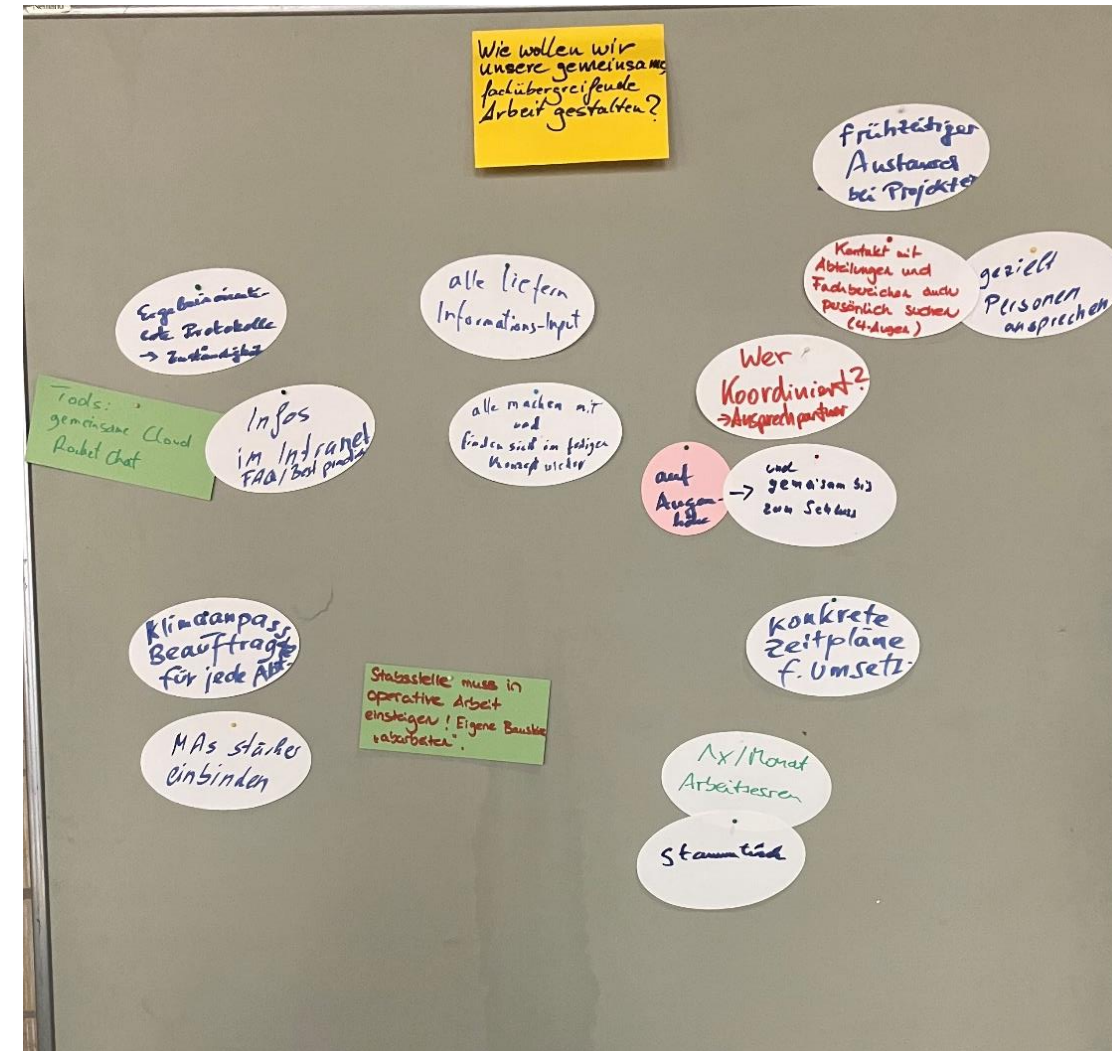 Wie wollen wir
unsere gemeinsame
fachübergreifende
Arbeit gestalten?
frühzeitiger
Austausch
bei Projekten
Kontakt mit
Abteilungen und
Fachbereichen auch
persönlich suchen
(4-Augen)
gezielt
Personen
ansprechen
Ergebnisorientier-
erte Protokolle
→ Zuständigkeit
alle liefern
Informations-Input
Wer
Koordiniert?
→Ansprechpartner
Tools:
gemeinsame Cloud
Rocket Chat
Infos
im Intranet
FAQ/Best practice
alle machen mit
und
finden sich im fertigen
Konzept wieder
auf
Augen-
höhe
→ und
gemeinsam bis
zum Schluss
Klimaanpass.
Beauftragte
für jede Abt.
Stabsstelle muss in
operative Arbeit
einsteigen! Eigene
"abarbeiten".
konkrete
Zeitpläne
f. Umsetz.
MAs stärker
einbinden
1x/Monat
Arbeitsessen
Stammtisch